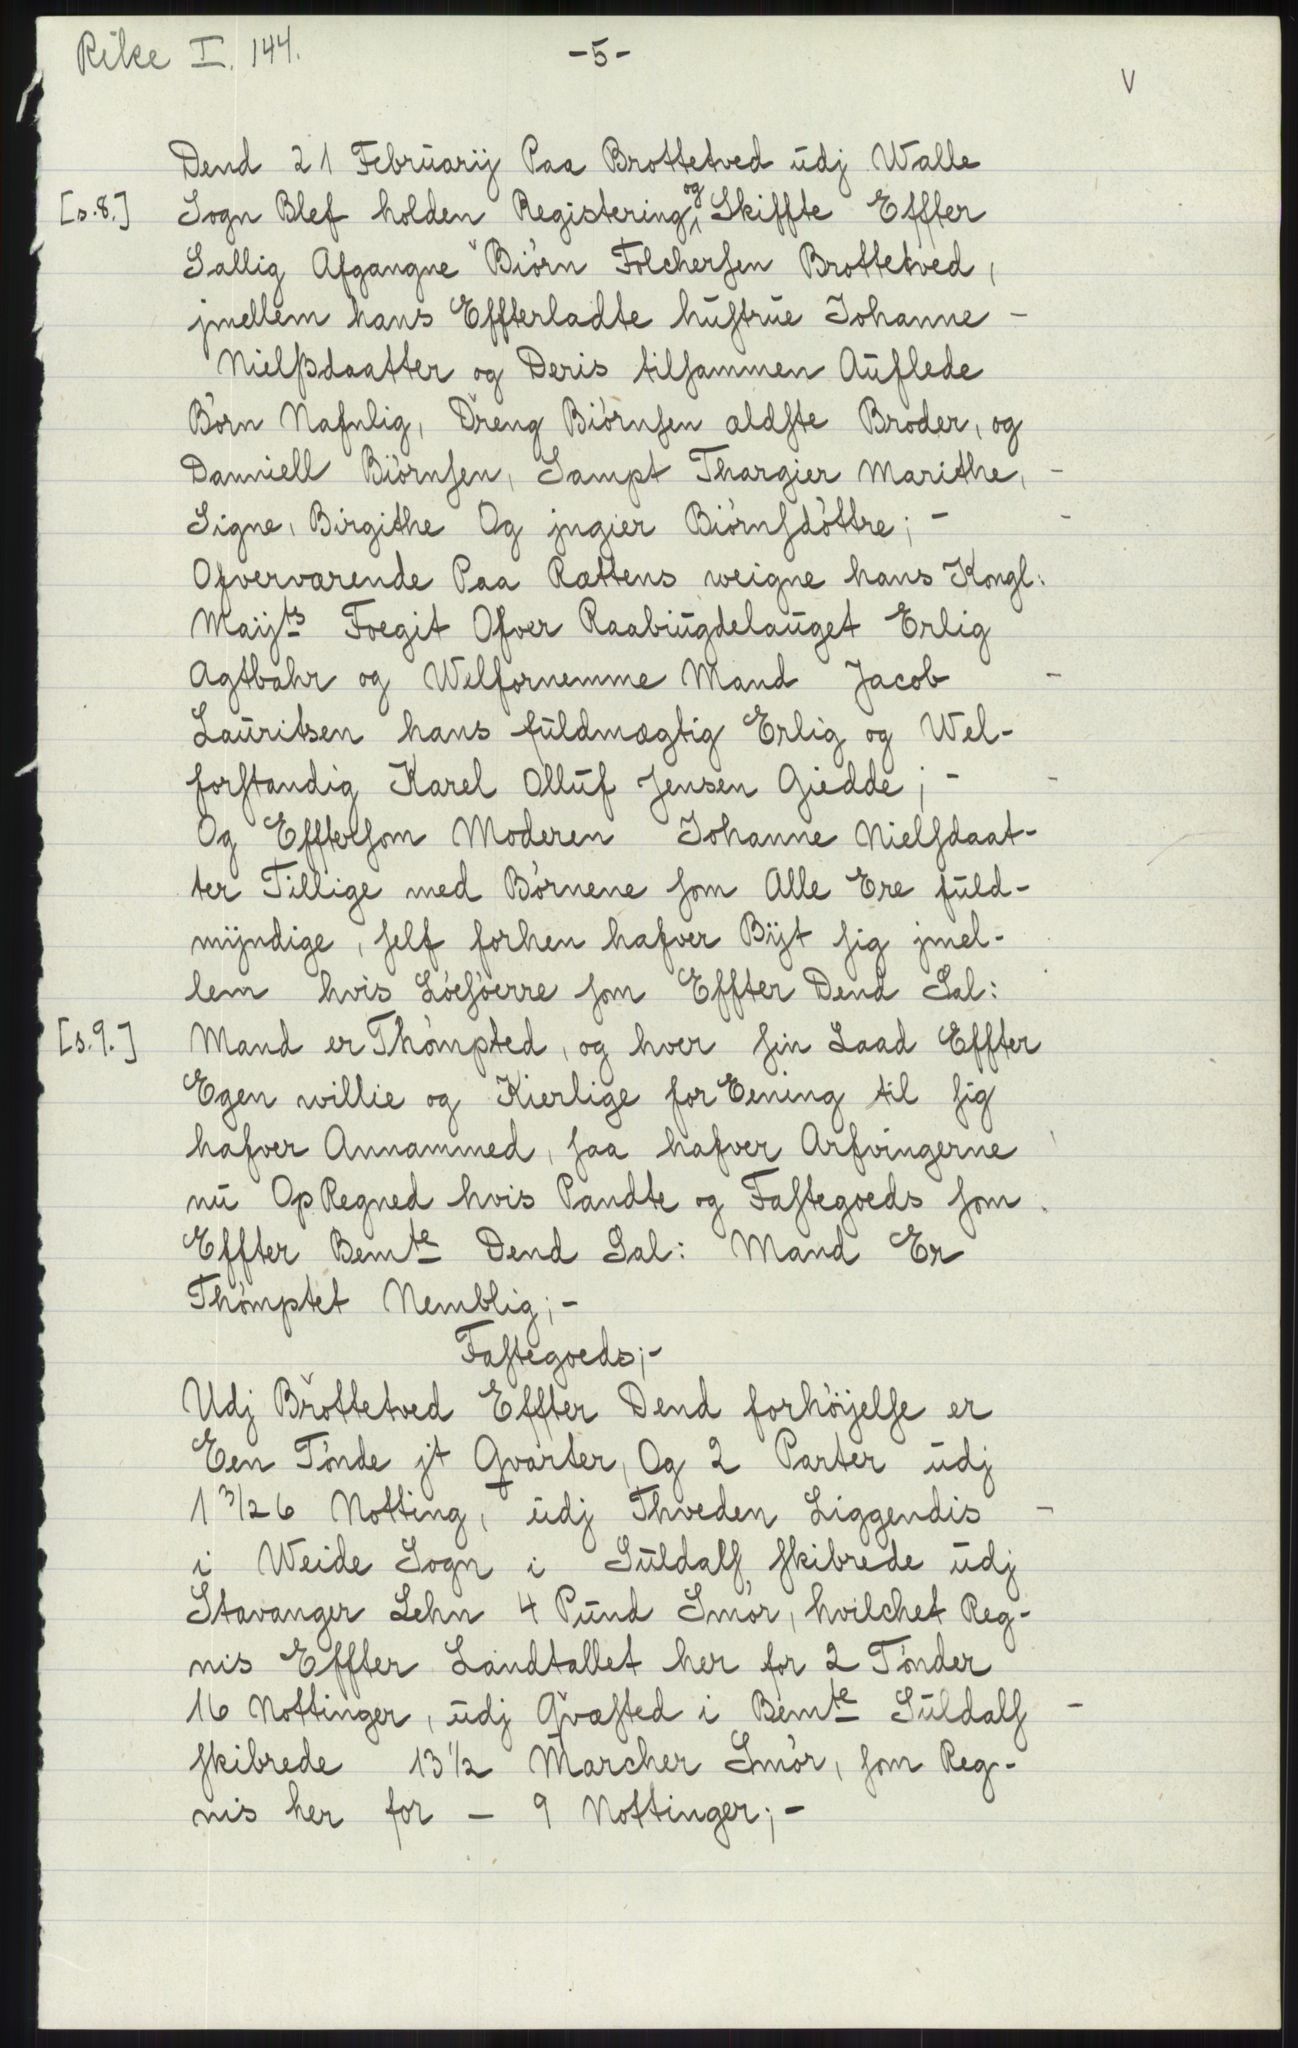 Rike I. 144.
-5-
V
Dend 21 Februarij Paa Brottetved udj Walle
[s.8.] Sogn Blef holden Registering og Skiffte Effter
Sallig Afgangne Biörn Folchersen Brottetved,
jmellem hans Effterladte hustrue Johanne -
Nielßdaatter og Deris tilsammen Auflede
Börn Nafnlig, Dreng Biörnsen aldste Broder, og
Danniell Biörnsen, Sampt Thargier Marithe, -
Signe, Birgithe Og jngier Biörnsdöttre; - -
Ofverværende Paa Rættens weigne hans Kongl:
Maijts Foegit Ofver Raabiugdelauget Erlig
Agtbahr og Welfornemme Mand Jacob -
Lauritsen hans fuldmægtig Erlig og Wel-
forstandig Karel Olluf Jensen Giedde; - -
Og Efftersom Moderen Johanne Nielsdaat-
ter Tillige med Börnene som Alle Ere fuld-
mijndige, self forhen hafver Bijt sig jmel-
lem hvis Löesöerre som Effter Dend Sal:
[s.9.] Mand er Thömpted, og hver sin Laad Effter
Egen willie og Kierlige forEening til sig
hafver Annammed, saa hafver Arfvingerne
nu OpRegned hvis Pandte og Fastegoeds som
Effter Bemte Dend Sal: Mand Er
Thömptet Nemblig; -
Fastegoeds; -
Udj Brottetved Effter Dend forhöijelse er
Een Tönde jt Qvarter, Og 2 Parter udj
1 3/26 Notting, udj Thveden Liggendis -
i Weide Sogn i Suldals skibrede udj
Stavanger Lehn 4 Pund Smör, hvilchet Reg-
nis Effter Landtallet her for 2 Tönder
16 Nottinger, udj Qvæsted i Bemte Suldals -
skibrede 13 1/2 Marcher Smör, som Reg-
nis her for - 9 Nottinger; -